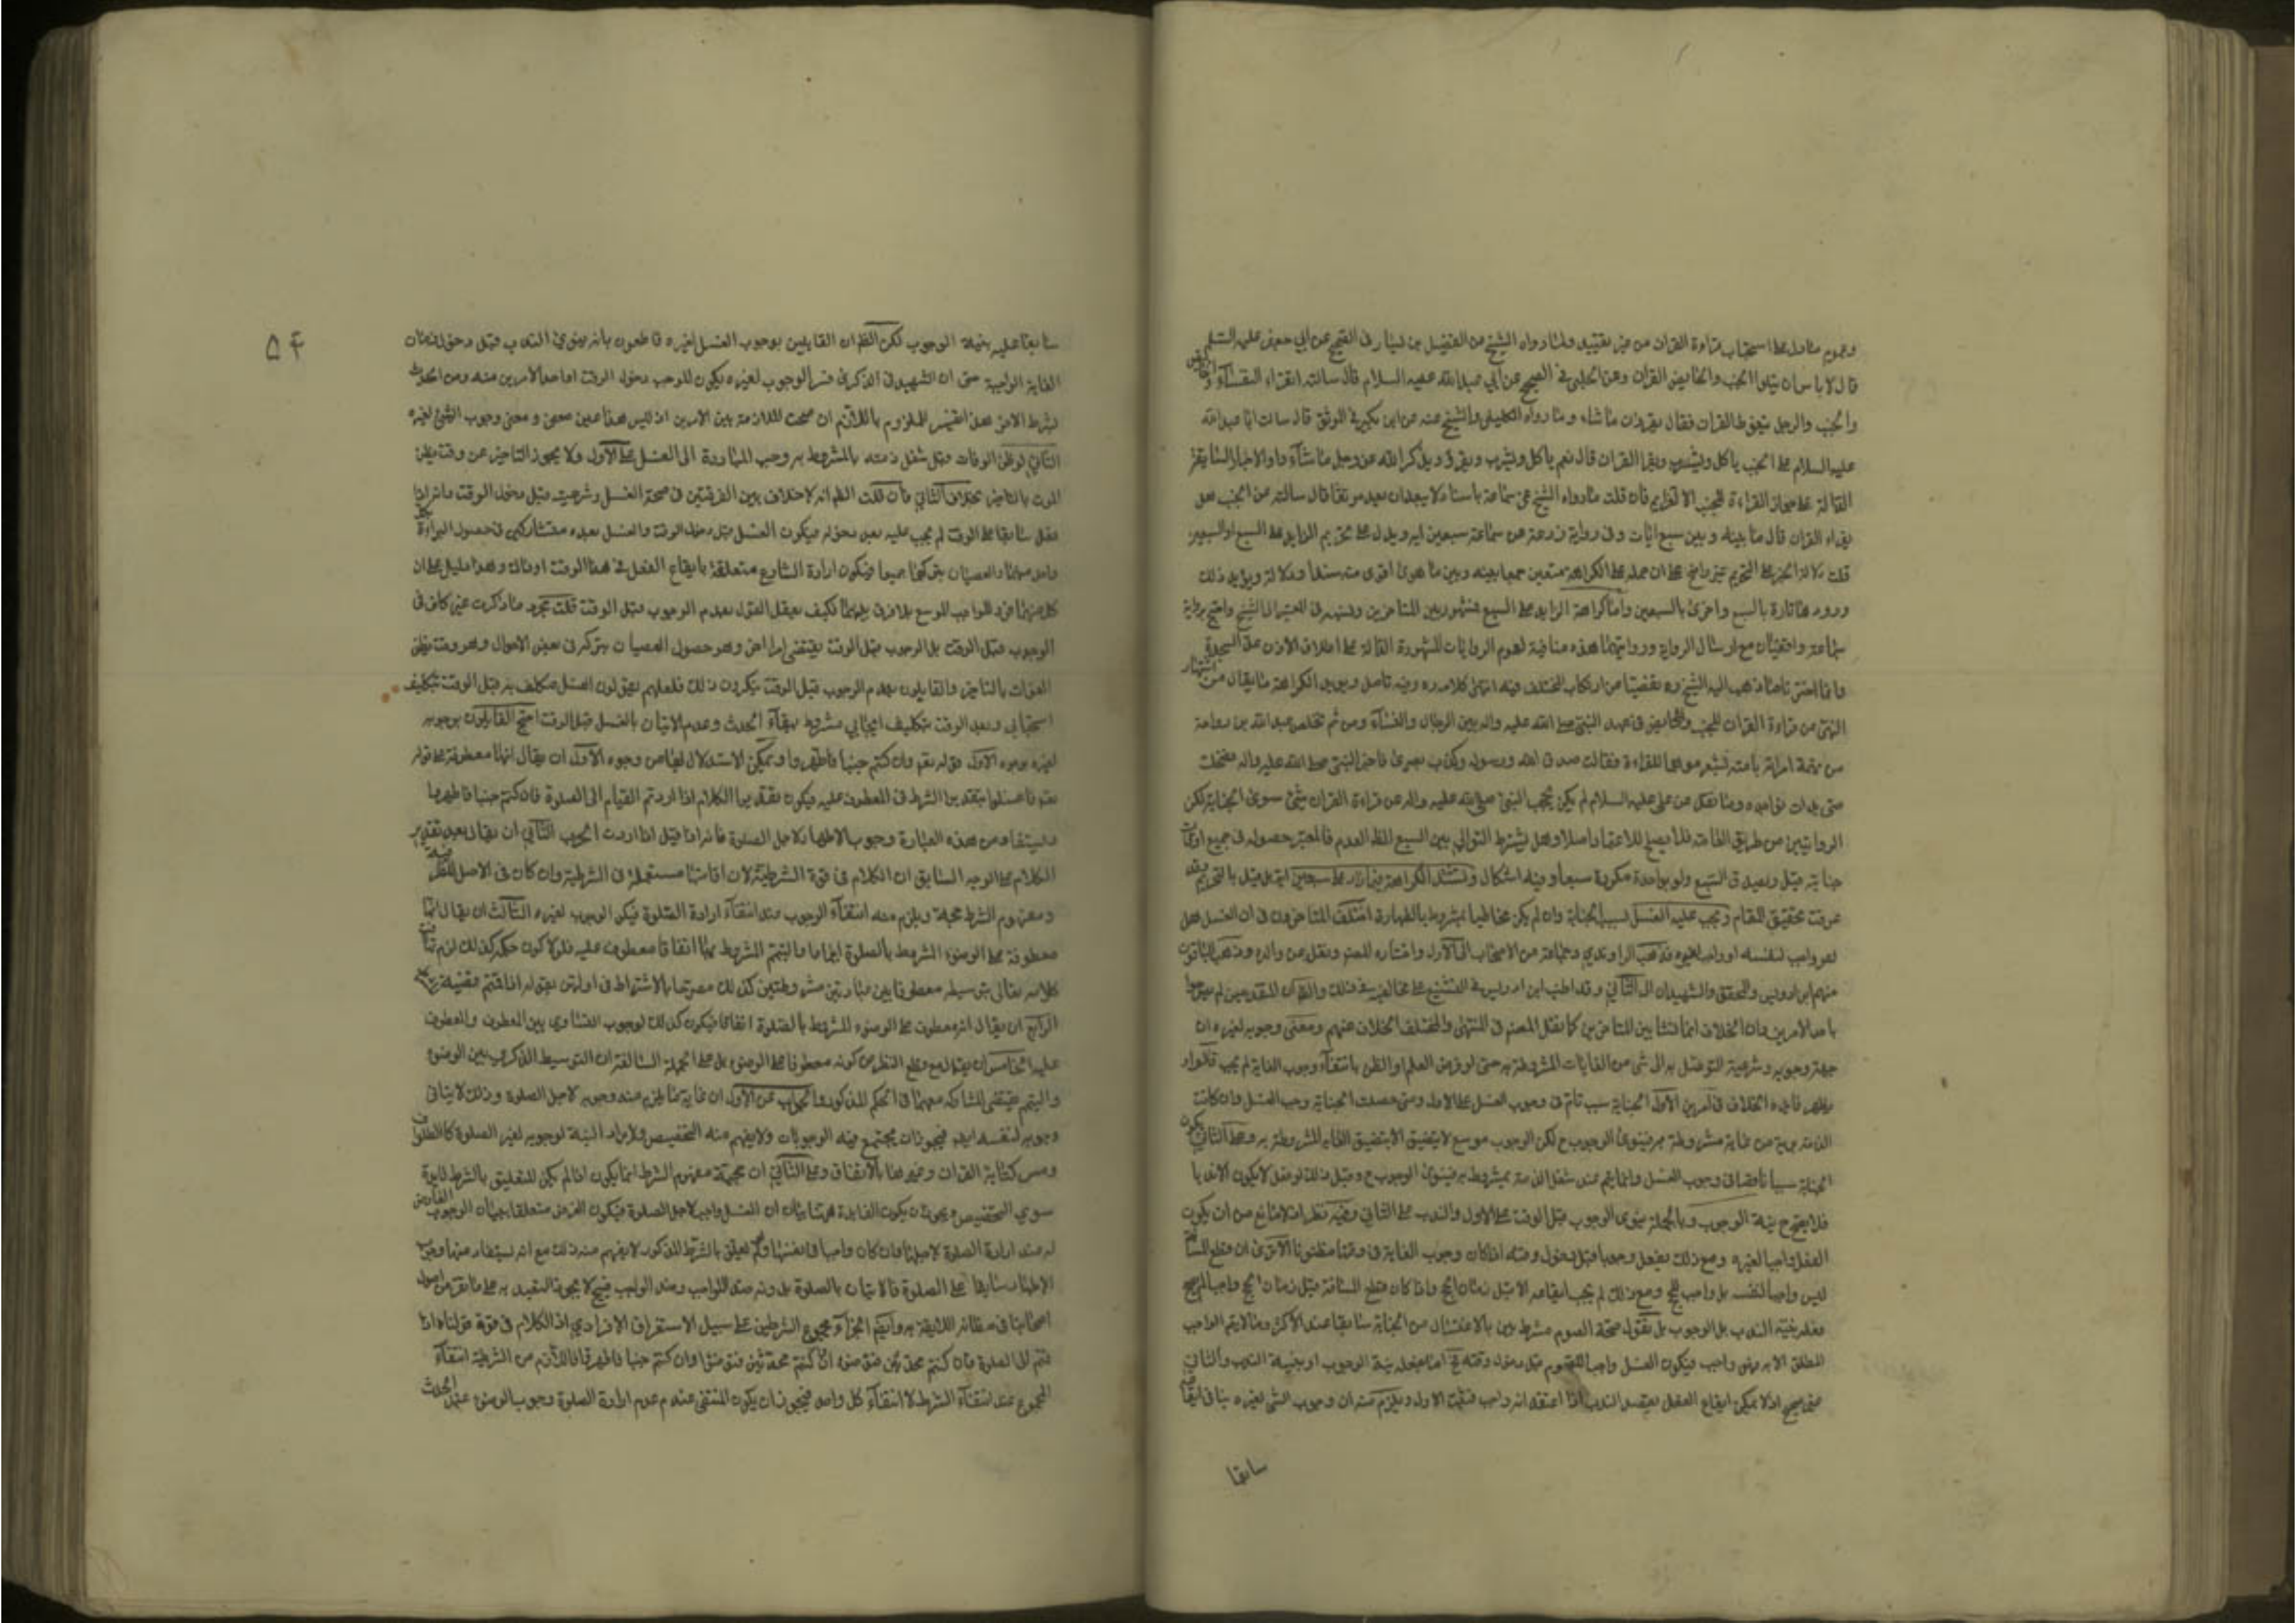 وعموم ما دل على استحباب قراءة القران من غير تقييد ولما رواه الشيخ عن الفضيل بن يسار في الصحيح عن أبي جعفر عليه السلام
قال لا باس ان يتلوا الجنب والحايض القران وعن الحلبي في الصحيح عن أبي عبد الله عليه السلام قال سالته اتقراء النفساء والحايض
والجنب والرجل يتغوط القران فقال يقرؤن ما شاء وما رواه الكليني والشيخ عنه عن ابن بكير في الموثق قال سالت ابا عبد الله
عليه السلام عن الجنب ياكل ويشرب ويقرا القران قال نعم ياكل ويشرب ويقرؤ ويذكر الله عز وجل ما شاء
الدالة على جواز القراءة للجنب الا العزايم فان قلت ما رواه الشيخ عن سماعة باسناد لا يبعد ان يعد موثقا قال سالته عن الجنب هل
يقراء القران قال ما بينه وبين سبع ايات وفي رواية زرعة عن سماعة سبعين اية ويدل على تحريم الزايد على السبع او السبعين
قلت دلالة الخبر على التحريم غير واضح على ان حمله على الكراهة متعين جمعا بينه وبين ما هو اقوى منه سندا ودلالة ويؤيد ذلك
وروده تارة بالسبع واخرى بالسبعين واما كراهة الزايد على السبع فمشهور بين المتاخرين ونسبه في المعتبر الى الشيخ واحتج برواية
سماعة مع ارسال الرواية وروايتهما هذه منافية لعموم الروايات المشهورة الدالة على اطلاق الاذن عدا السجدة
وانما اخترنا ما ذهب اليه الشيخ ره تفصيا من ارتكاب المختلف فيه انتهى كلامه ره وفيه تامل ويؤيد الكراهة ما يقال من اشتهار
النهي عن قراءة القران للجنب والحايض في عهد النبي صلى الله عليه واله بين الرجال والنساء ومن ثم تخلص عبد الله بن رواحة
من تهمة امراته بامته بشعر موهما للقراءة فقالت صدق الله ورسوله وكذب بصري فاخبر النبي صلى الله عليه واله فضحك
حتى بدت نواجده وما نقل عن علي عليه السلام لم يكن يحجب النبي صلى الله عليه واله عن قراءة القران شئ سوى الجنابة لكن
الروايتين من طريق العامة فلا يصلح للاعتماد اصلا وهل يشترط التوالي بين السبع الظ العدم فالمعتبر حصوله في جميع اوقات
جنابته وبعيد في السبع ولو بواحدة مكررة سبعا وفيه اشكال وتشتد الكراهة فيما زاد على سبعين اية بل قيل بالتحريم وقد
عرفت تحقيق المقام ويجب عليه الغسل لسبب الجنابة وان لم يكن مخاطبا بمشروط بالطهارة اختلف المتاخرون في ان الغسل هل
هو واجب لنفسه او واجب لغيره فذهب الراوندي وجماعة من الاصحاب الى الاول واختاره المصنف ونقل عن والده وذهب الباقون
منهم ابن ادريس والمحقق والشهيدان الى الثاني وقد اطنب ابن ادريس في التشنيع على مخالفيه في ذلك والقدماء المتقدمين لم
باحد الامرين وان الخلاف انما نشا بين المتاخرين كما نقل المصنف في المنتهى والمختلف الخلاف عنهم ومعنى وجوبه لغيره ان
جهة وجوبه وشرعيته التوصل به الى شئ من الغايات المشروطة به حتى لو فرض العلم او الظن بانتفاء وجوب الغاية لم يجب قالوا
ويظهر فايدة الخلاف في امرين الاول الجنابة سبب تام في وجوب الغسل على الاول ومتى حصلت الجنابة وجب الغسل وان كانت
الذمة برية من غاية مشروطة به فينوى الوجوب ح لكن الوجوب موسع لا يتضيق الا بتضيق الغاية المشروطة به وعلى الثاني يكون
الجنابة سببا ناقصا في وجوب الغسل وانما يتم عند شغل الذمة بمشروط به فينوى الوجوب ح وقبل ذلك لو فعل لا يكون الا ندبا
فلا يصح نية الوجوب وبالجملة ينوى الوجوب قبل الوقت على الاول والندب على الثاني وفيه نظر اذ لا مانع من ان يكون
الفعل واجبا لغيره ومع ذلك يفعل وجوبا قبل دخول وقته اذا كان وجوب الغاية في وقتها مظنونا الا ترى ان قطع المسافة
ليس واجبا لنفسه بل واجب للحج ومع ذلك لم يجب ايقاعه الا قبل زمان الحج واذا كان قطع المسافة قبل زمان الحج واجبا للحج
بل نقول صحة الصوم مشروط بالاغتسال من الجنابة سابقا عند الاكثر وما لا يتم الواجب
المطلق الا به فهو واجب فيكون الغسل واجبا للصوم قبل دخول وقته فح اما يفعله بنية الوجوب او بنية الندب والثاني
غير صحيح اذ لا يمكن ايقاع الفعل بقصد الندب اذا اعتقد انه واجب فثبت الاول ويلزم منه ان وجوب الشئ لغيره لا ينافي ايقاعه
سابقا
۵۴
سابقا عليه بنية الوجوب لكن الظ ان القايلين بوجوب الغسل لغيره قاطعون بانه ينوي الندب قبل دخول زمان
الغاية الواجبة حتى ان الشهيد في الذكرى فسر الوجوب لغيره بكون الموجب دخول الوقت او احد الامرين منه ومن الحدث
بشرط الاخر لعل تفسير للملزوم باللازم ان صحت الملازمة بين الامرين اذ ليس هذا عين معنى وجوب الشئ لغيره
الثاني لو ظن الوفات قبل شغل ذمته بالمشروط به وجب المبادرة الى الغسل على الاول ولا يجوز التاخير عن وقت يظن
الموت بالتاخير بخلاف الثاني فان قلت الظ انه لا خلاف بين الفريقين في صحة الغسل وشرعيته قبل دخول الوقت وانه اذا
فعل سابقا على الوقت لم يجب عليه بعد دخوله فيكون الغسل قبل دخول الوقت والغسل بعده متشاركين في حصول البراءة
والعصيان بتركهما جميعا فيكون ارادة الشارع متعلقة بايقاع الفعل في هذا الوقت او ذاك وهذا دليل على ان
كل منهما فرد للواجب الموسع بلا فرق بينهما فكيف يعقل القول بعدم الوجوب قبل الوقت قلت مجرد ما ذكرت غير كاف في
الوجوب قبل الوقت بل الوجوب قبل الوقت يقتضي امرا اخر وهو حصول العصيان بتركه في بعض الاحوال وهو وقت يظن
الفوات بالتاخير والقايلون بعدم الوجوب قبل الوقت ينكرون ذلك فلعلهم يقولون الغسل مكلف به قبل الوقت بتكليف
استحبابي وبعد الوقت بتكليف ايجابي مشروط ببقاء الحدث وعدم الاتيان بالغسل قبل الوقت احتج القايلون بوجوبه
لغيره بوجوه الاول قوله تعم وان كنتم جنبا فاطهروا ويمكن الاستدلال بها من وجوه الاول ان يقال انها معطوفة على قوله
تعم فاغسلوا بتقدير الشرط في المعطوف عليه فيكون تقدير الكلام اذا اردتم القيام الى الصلوة فان كنتم جنبا فاطهروا
ويستفاد من هذه العبارة وجوب الاطهار لاجل الصلوة الثاني ان يقال بعد تقدير
الكلام على الوجه السابق ان الكلام في قوة الشرطية لان اذا شائبا مستعملة في الشرطية وان كان في الاصل للظرفية
ومفهوم الشرط حجة ويلزم منه انتفاء الوجوب عند انتفاء ارادة الصلوة فيكون الوجوب لغيره الثالث ان يقال انها
معطوفة على الوضوء المشروط بالصلوة اجماعا والتيمم المشروط بها اتفاقا معطوف عليه فلولا كون حكمه كذلك لزم
كلامه تعالى بتوسيطه معطوفا بين عبارتين مشروطتين كذلك مصرحا بالاشتراط في اولهن بقوله اذا قمتم
الرابع ان يقال انه معطوف على الوضوء المشروط بالصلوة اتفاقا فيكون كذلك لوجوب التساوي بين المعطوف والمعطوف
عليه الخامس ان يقال مع قطع النظر عن كونه معطوفا على الوضوء بل على الجملة السالفة ان التوسيط الذكري بين الوضوء
والتيمم يقتضي المشاركة معهما في الحكم المذكور والجواب عن الاول ان غاية ما يلزم منه وجوبه لاجل الصلوة وذلك لا ينافي
وجوبه لنفسه ايضا فيجوز ان يجتمع فيه الوجوبان ولا يفهم منه التخصيص لوجوبه لغير الصلوة كالطواف
ومس كتابة القران وغيرهما بالاتفاق وعلى الثاني ان حجية مفهوم الشرط انما يكون اذا لم يكن للتعليق بالشرط فايدة
سوى التخصيص ويجوز ان يكون الفايدة هنا بيان ان الغسل واجب لاجل الصلوة فيكون الغرض متعلقا ببيان الوجوب العارض
له عند ارادة الصلوة لاجلها وان كان واجبا في نفسه ولم يعلق بالشرط المذكور لا يفهم منه ذلك مع انه يستفاد منها وجوب
الاطهار سابقا على الصلوة فالاتيان بالصلوة بدونه ضد الواجب وضد الواجب قبيح لا يجوز التعبد به على ما تقرر من اصول
اصحابنا في مظانه اللايقة به وايضا الجزاء مجموع الشرطين على سبيل الاستغراق الافرادي اذ الكلام في قوة قولنا اذا
قمتم الى الصلوة فان كنتم محدثين فتوضؤا وان كنتم جنبا فاطهروا فاللازم من الشرطية انتفاء
المجموع عند انتفاء الشرط لا انتفاء كل واحد فيجوز ان يكون المنتفي عند عدم ارادة الصلوة وجوب الوضوء عند الحدث